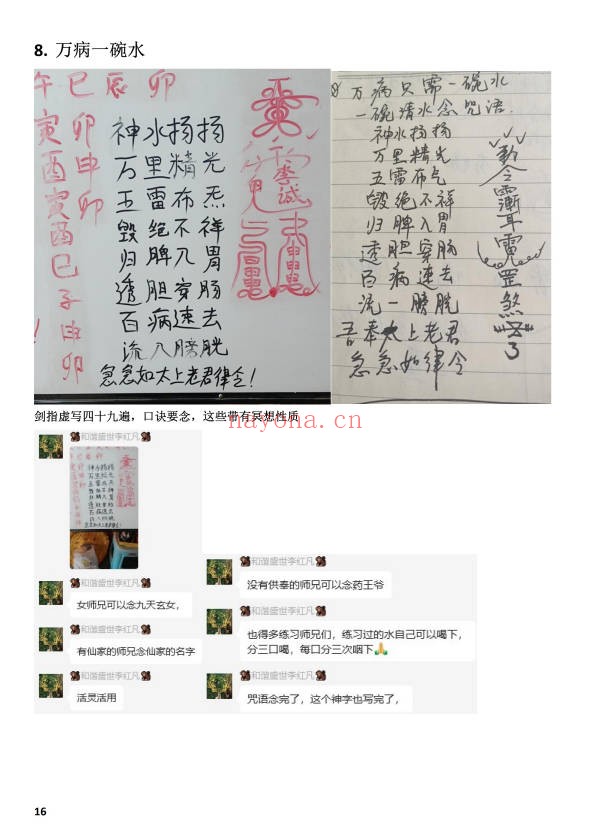 8. 万病一碗水
午 巳 辰 卯
寅 酉 寅 酉 巳 子 申 卯
卯 申 卯
神水扬扬
万里精光
五雷布炁
毁绝不祥
归脾入胃
透胆穿肠
百病速去
流入膀胱
急急如太上老君律令!
李诚
万病只需一碗水
一碗清水念咒语.
神水扬扬
万里精光
五雷布气
毁绝不祥
归脾入胃
透胆穿肠
百病速去
流一膀胱
吾奉太上老君
急急如律令
罡煞
剑指虚写四十九遍,口诀要念,这些带有冥想性质
nayona.cn
和谐盛世李红凡
和谐盛世李红凡
女师兄可以念九天玄女,
和谐盛世李红凡
有仙家的师兄念仙家的名字
和谐盛世李红凡
活灵活用
和谐盛世李红凡
没有供奉的师兄可以念药王爷
和谐盛世李红凡
也得多练习师兄们,练习过的水自己可以喝下,
分三口喝,每口分三次咽下🙏
和谐盛世李红凡
咒语念完了,这个神字也写完了,
16